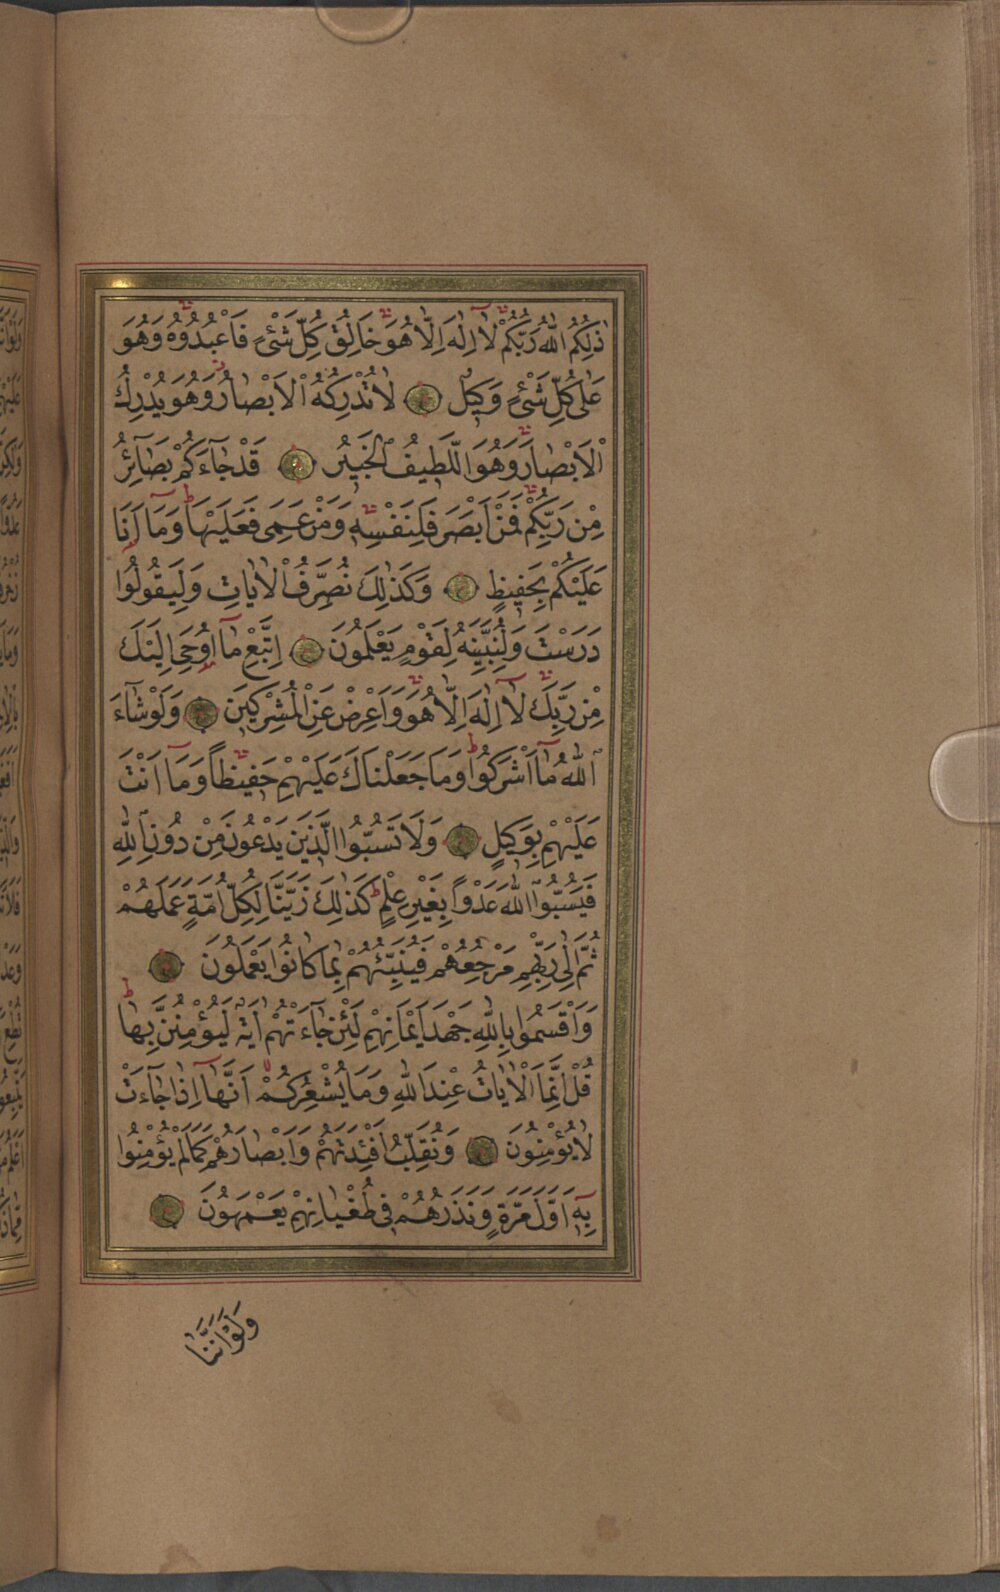 ذٰلِكُمُ اللّٰهُ رَبُّكُمْ لَٓا اِلٰهَ اِلَّا هُوَ خَالِقُ كُلِّ شَيْءٍ فَاعْبُدُوهُ وَهُوَ
عَلٰى كُلِّ شَيْءٍ وَكِيلٌ لَا تُدْرِكُهُ الْاَبْصَارُ وَهُوَ يُدْرِكُ
الْاَبْصَارَ وَهُوَ اللَّطِيفُ الْخَبِيرُ قَدْ جَٓاءَكُمْ بَصَٓائِرُ
مِنْ رَبِّكُمْ فَمَنْ اَبْصَرَ فَلِنَفْسِهِ وَمَنْ عَمِىَ فَعَلَيْهَا وَمَٓا اَنَا
عَلَيْكُمْ بِحَفِيظٍ وَكَذٰلِكَ نُصَرِّفُ الْاٰيَاتِ وَلِيَقُولُوا
دَرَسْتَ وَلِنُبَيِّنَهُ لِقَوْمٍ يَعْلَمُونَ اِتَّبِعْ مَٓا اُوحِىَ اِلَيْكَ
مِنْ رَبِّكَ لَٓا اِلٰهَ اِلَّا هُوَ وَاَعْرِضْ عَنِ الْمُشْرِكِينَ وَلَوْ شَٓاءَ
اللّٰهُ مَٓا اَشْرَكُوا وَمَا جَعَلْنَاكَ عَلَيْهِمْ حَفِيظًا وَمَٓا اَنْتَ
عَلَيْهِمْ بِوَكِيلٍ وَلَا تَسُبُّوا الَّذِينَ يَدْعُونَ مِنْ دُونِ اللّٰهِ
فَيَسُبُّوا اللّٰهَ عَدْوًا بِغَيْرِ عِلْمٍ كَذٰلِكَ زَيَّنَّا لِكُلِّ اُمَّةٍ عَمَلَهُمْ
ثُمَّ اِلٰى رَبِّهِمْ مَرْجِعُهُمْ فَيُنَبِّئُهُمْ بِمَا كَانُوا يَعْمَلُونَ
وَاَقْسَمُوا بِاللّٰهِ جَهْدَ اَيْمَانِهِمْ لَئِنْ جَٓاءَتْهُمْ اٰيَةٌ لَيُؤْمِنُنَّ بِهَا
قُلْ اِنَّمَا الْاٰيَاتُ عِنْدَ اللّٰهِ وَمَا يُشْعِرُكُمْ اَنَّهَٓا اِذَا جَٓاءَتْ
لَا يُؤْمِنُونَ وَنُقَلِّبُ اَفْئِدَتَهُمْ وَاَبْصَارَهُمْ كَمَا لَمْ يُؤْمِنُوا
بِهِٓ اَوَّلَ مَرَّةٍ وَنَذَرُهُمْ فِى طُغْيَانِهِمْ يَعْمَهُونَ
وَلَوْ اَنَّنَا